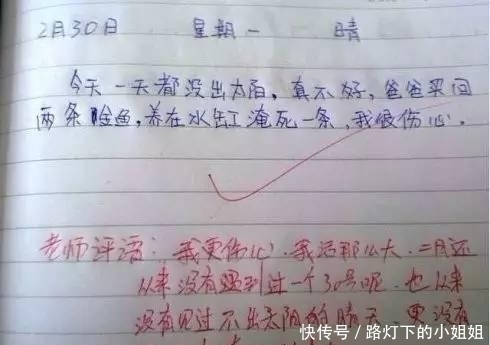 2月30日 星期一 晴
今天一天都没出太阳,真不好,爸爸买回
两条鲶鱼,养在水缸淹死一条,我很伤心。
老师评语:我更伤心,我活那么大,二月还
从来没有遇到过一个30号呢,也从来
没有见过不出太阳的晴天,更没有
快传号/路灯下的小姐姐